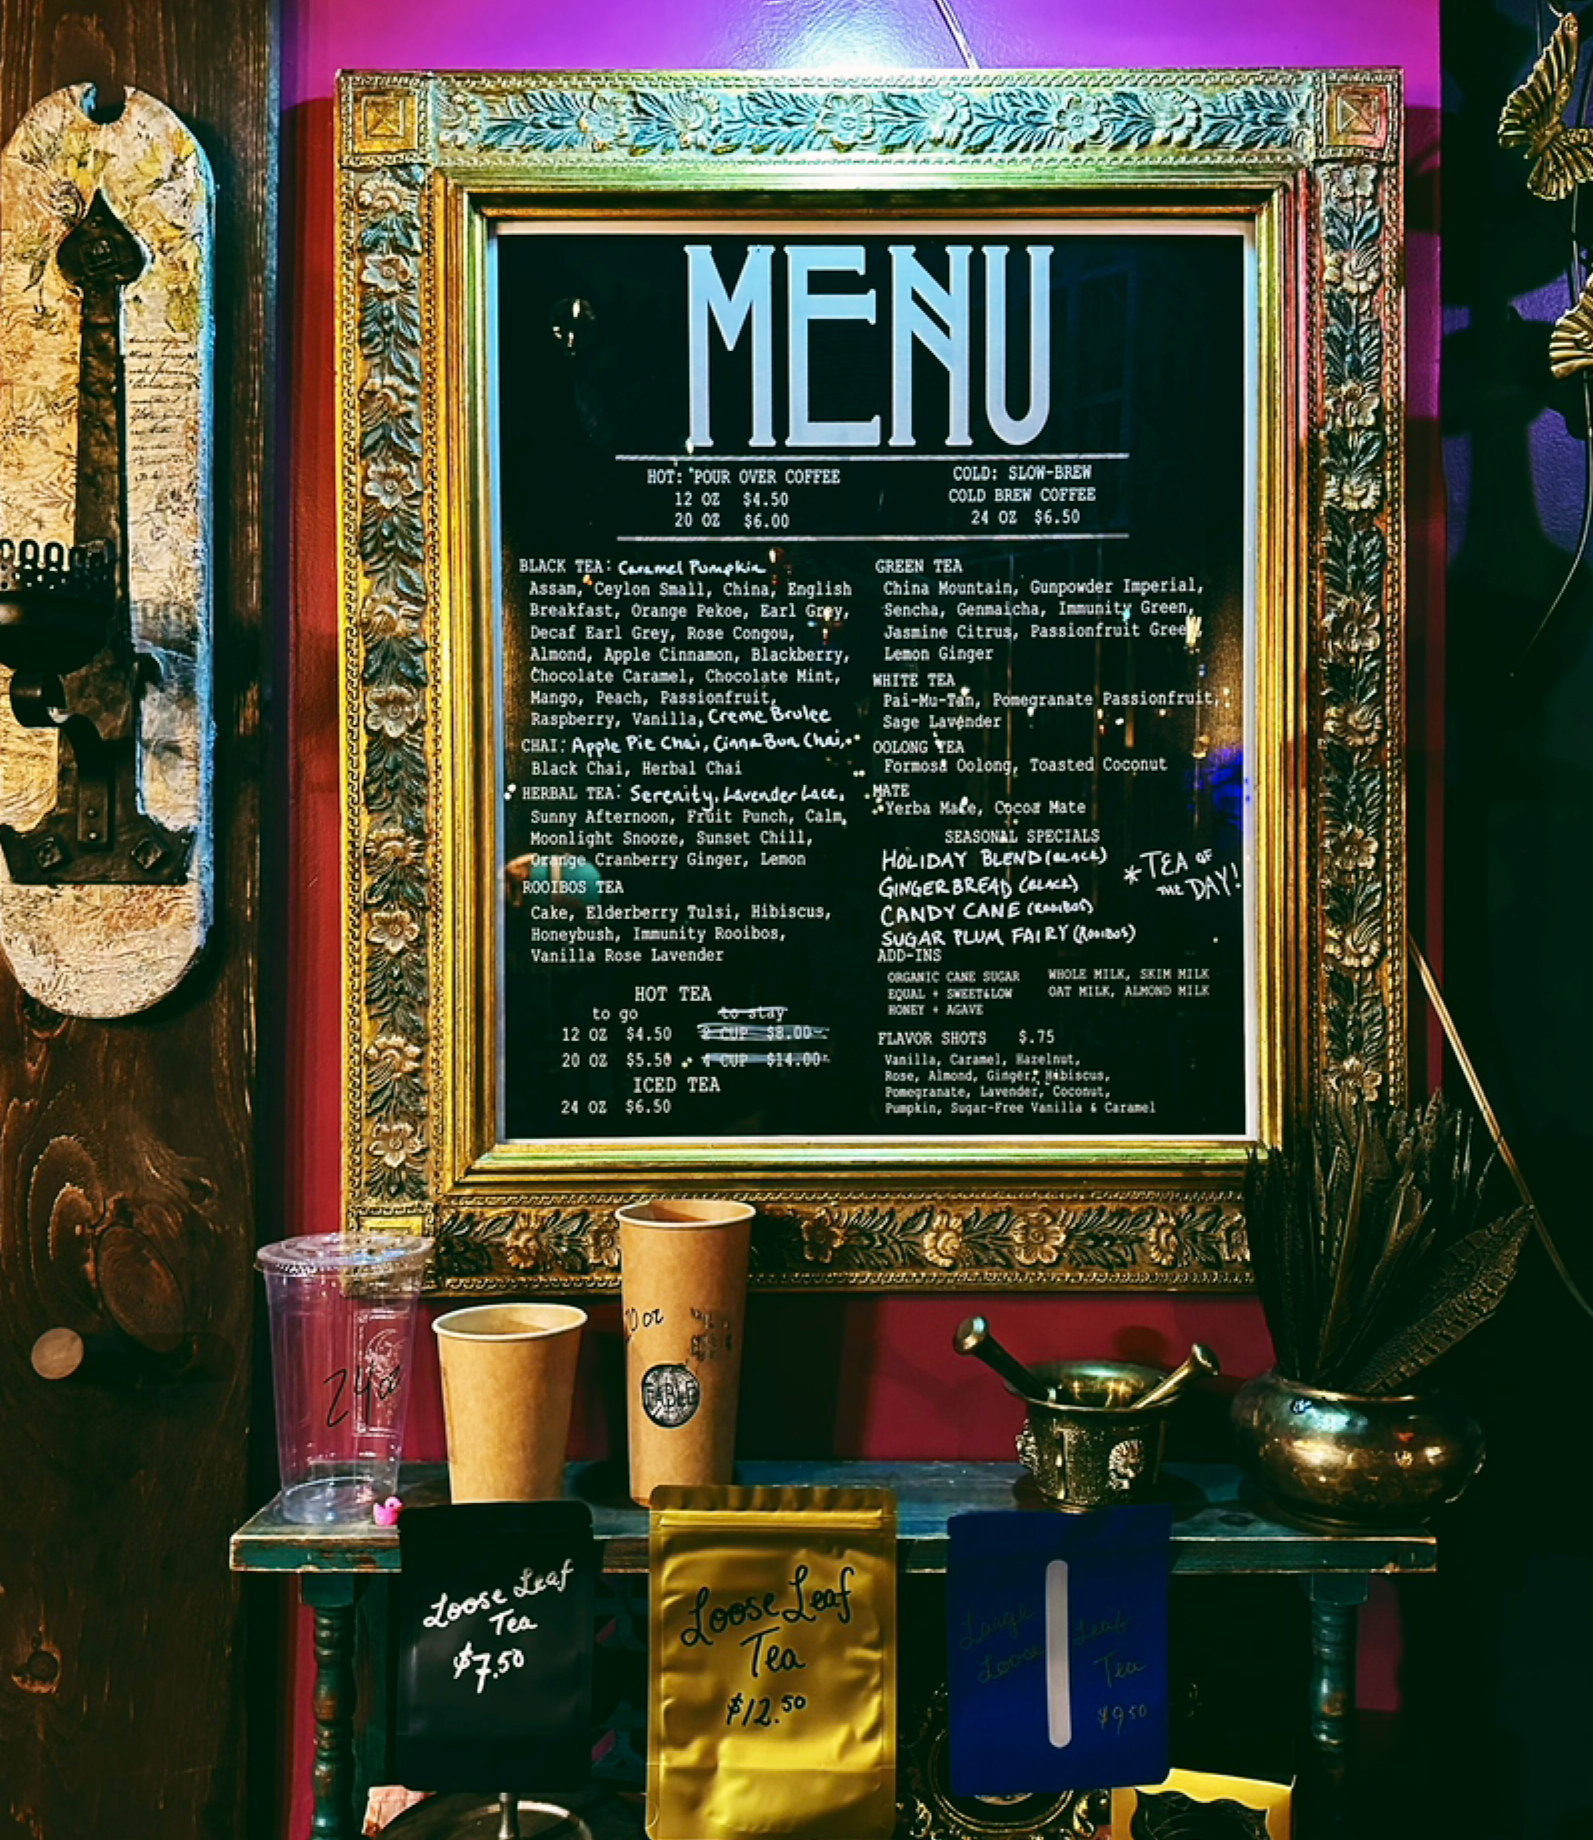 MENU
HOT: POUR OVER COFFEE
12 OZ $4.50
20 OZ $6.00
COLD: SLOW-BREW
COLD BREW COFFEE
24 OZ $6.50
BLACK TEA: Caramel Pumpkin
Assam, Ceylon Small, China, English
Breakfast, Orange Pekoe, Earl Grey,
Decaf Earl Grey, Rose Congou,
Almond, Apple Cinnamon, Blackberry,
Chocolate Caramel, Chocolate Mint,
Mango, Peach, Passionfruit,
Raspberry, Vanilla, Creme Brulee
CHAI: Apple Pie Chai, CinnaBun Chai,
Black Chai, Herbal Chai
HERBAL TEA: Serenity, Lavender Lace,
Sunny Afternoon, Fruit Punch, Calm,
Moonlight Snooze, Sunset Chill,
Orange Cranberry Ginger, Lemon
ROOIBOS TEA
Cake, Elderberry Tulsi, Hibiscus,
Honeybush, Immunity Rooibos,
Vanilla Rose Lavender
HOT TEA
to go to stay
12 OZ $4.50 2 CUP $8.00
20 OZ $5.50 4 CUP $14.00
ICED TEA
24 OZ $6.50
GREEN TEA
China Mountain, Gunpowder Imperial,
Sencha, Genmaicha, Immunity Green,
Jasmine Citrus, Passionfruit Green,
Lemon Ginger
WHITE TEA
Pai-Mu-Tan, Pomegranate Passionfruit,
Sage Lavender
OOLONG TEA
Formosa Oolong, Toasted Coconut
MATE
Yerba Mate, Cocoa Mate
SEASONAL SPECIALS
HOLIDAY BLEND (BLACK)
GINGERBREAD (BLACK)
CANDY CANE (ROOIBOS)
SUGAR PLUM FAIRY (ROOIBOS)
*TEA OF
THE DAY!
ADD-INS
ORGANIC CANE SUGAR
EQUAL + SWEET&LOW
HONEY + AGAVE
WHOLE MILK, SKIM MILK
OAT MILK, ALMOND MILK
FLAVOR SHOTS $.75
Vanilla, Caramel, Hazelnut,
Rose, Almond, Ginger, Hibiscus,
Pomegranate, Lavender, Coconut,
Pumpkin, Sugar-Free Vanilla & Caramel
24oz
20 oz
FABLE
Loose Leaf
Tea
$7.50
Loose Leaf
Tea
$12.50
Large
Loose Leaf
Tea
$9.50